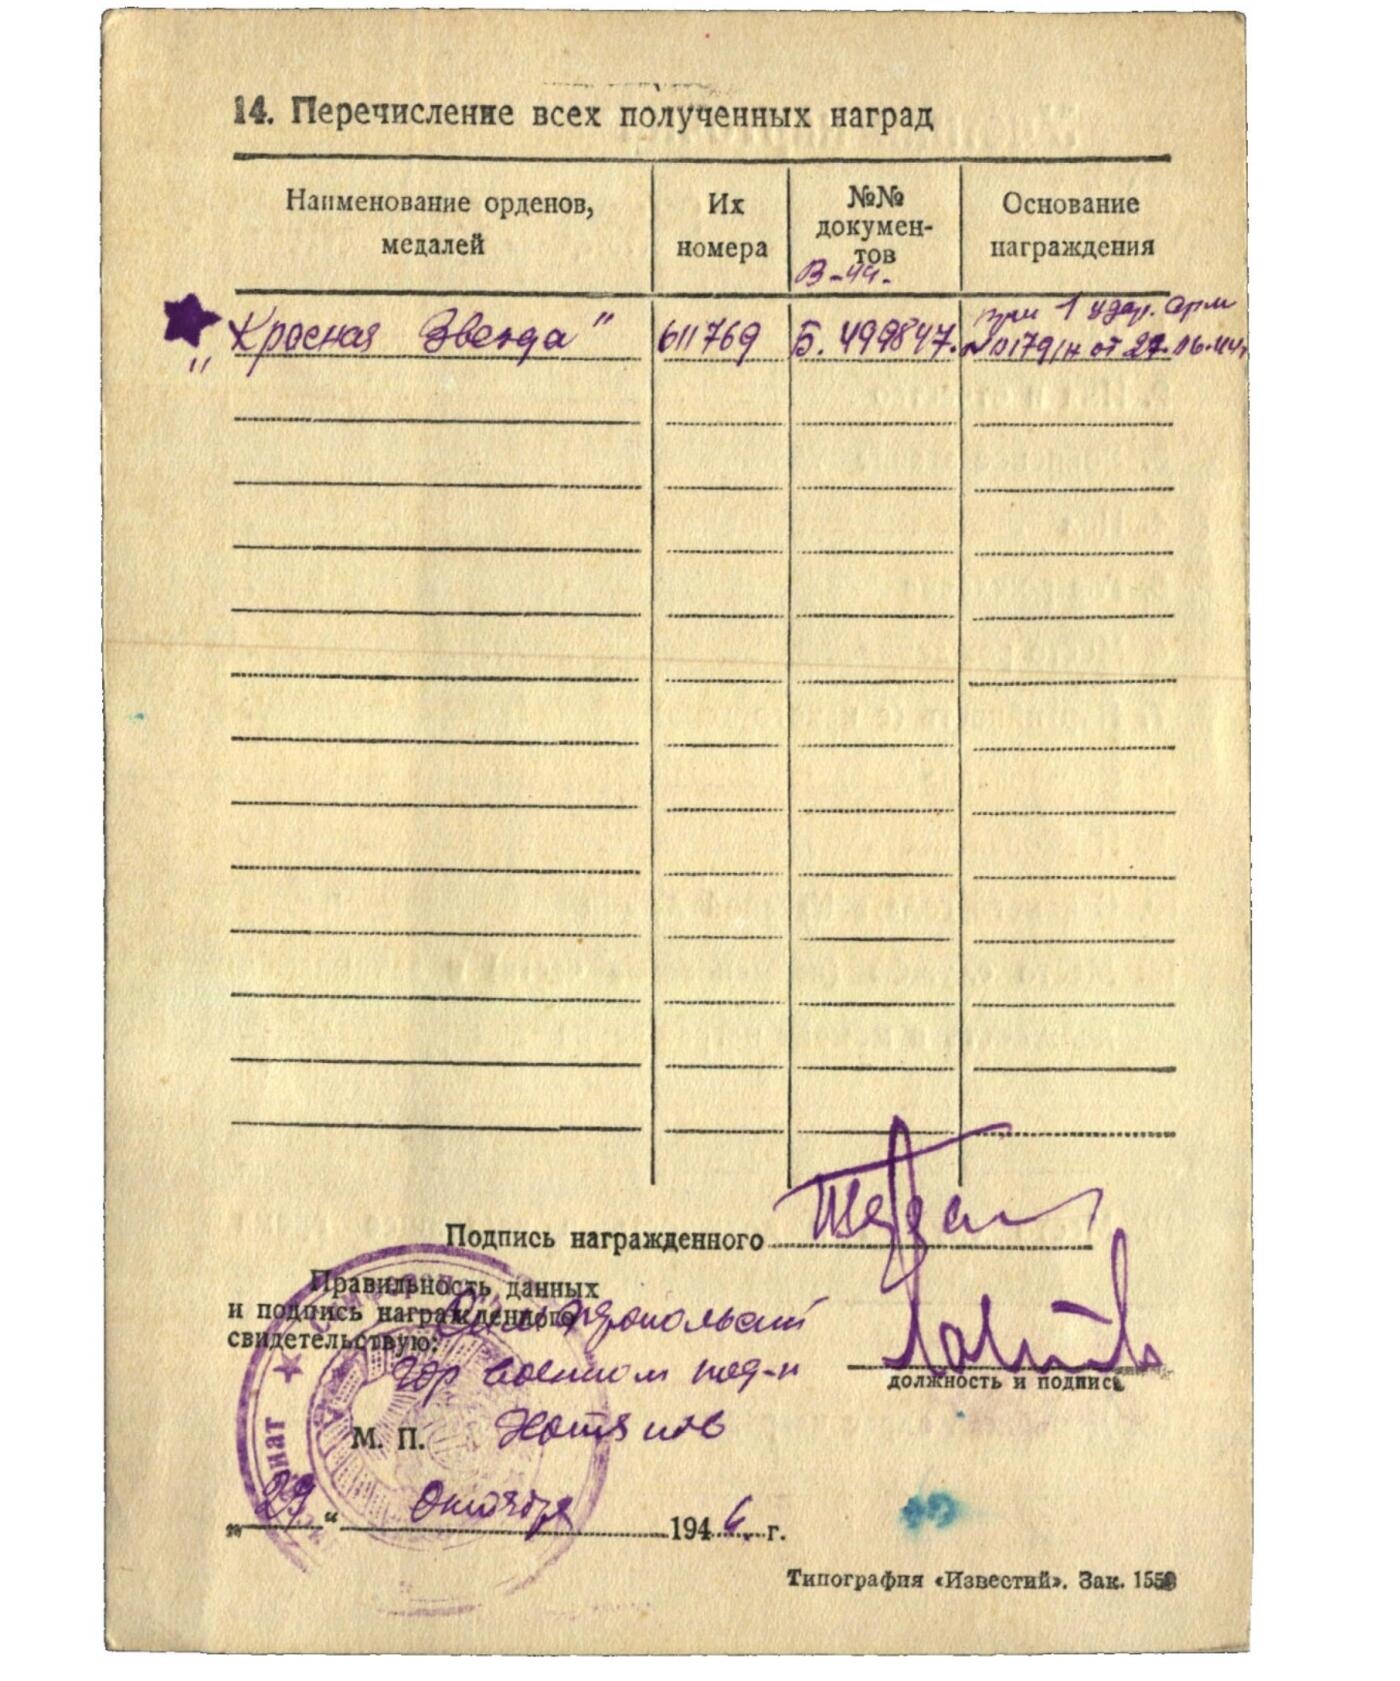 14. Перечисление всех полученных наград
Наименование орденов,
медалей
Их
номера
№№
докумен-
тов
В-44.
Основание
награждения
„Красная Звезда"
611769
Б. 499847.
1 удар. Арм
№ 0179/н от 27.06.44г
Подпись награжденного
Правильность данных
и подпись награжденного
свидетельствую:
Гор военком
должность и подпись
М. П.
„29" Октября 1946 г.
Типография «Известий». Зак. 1559